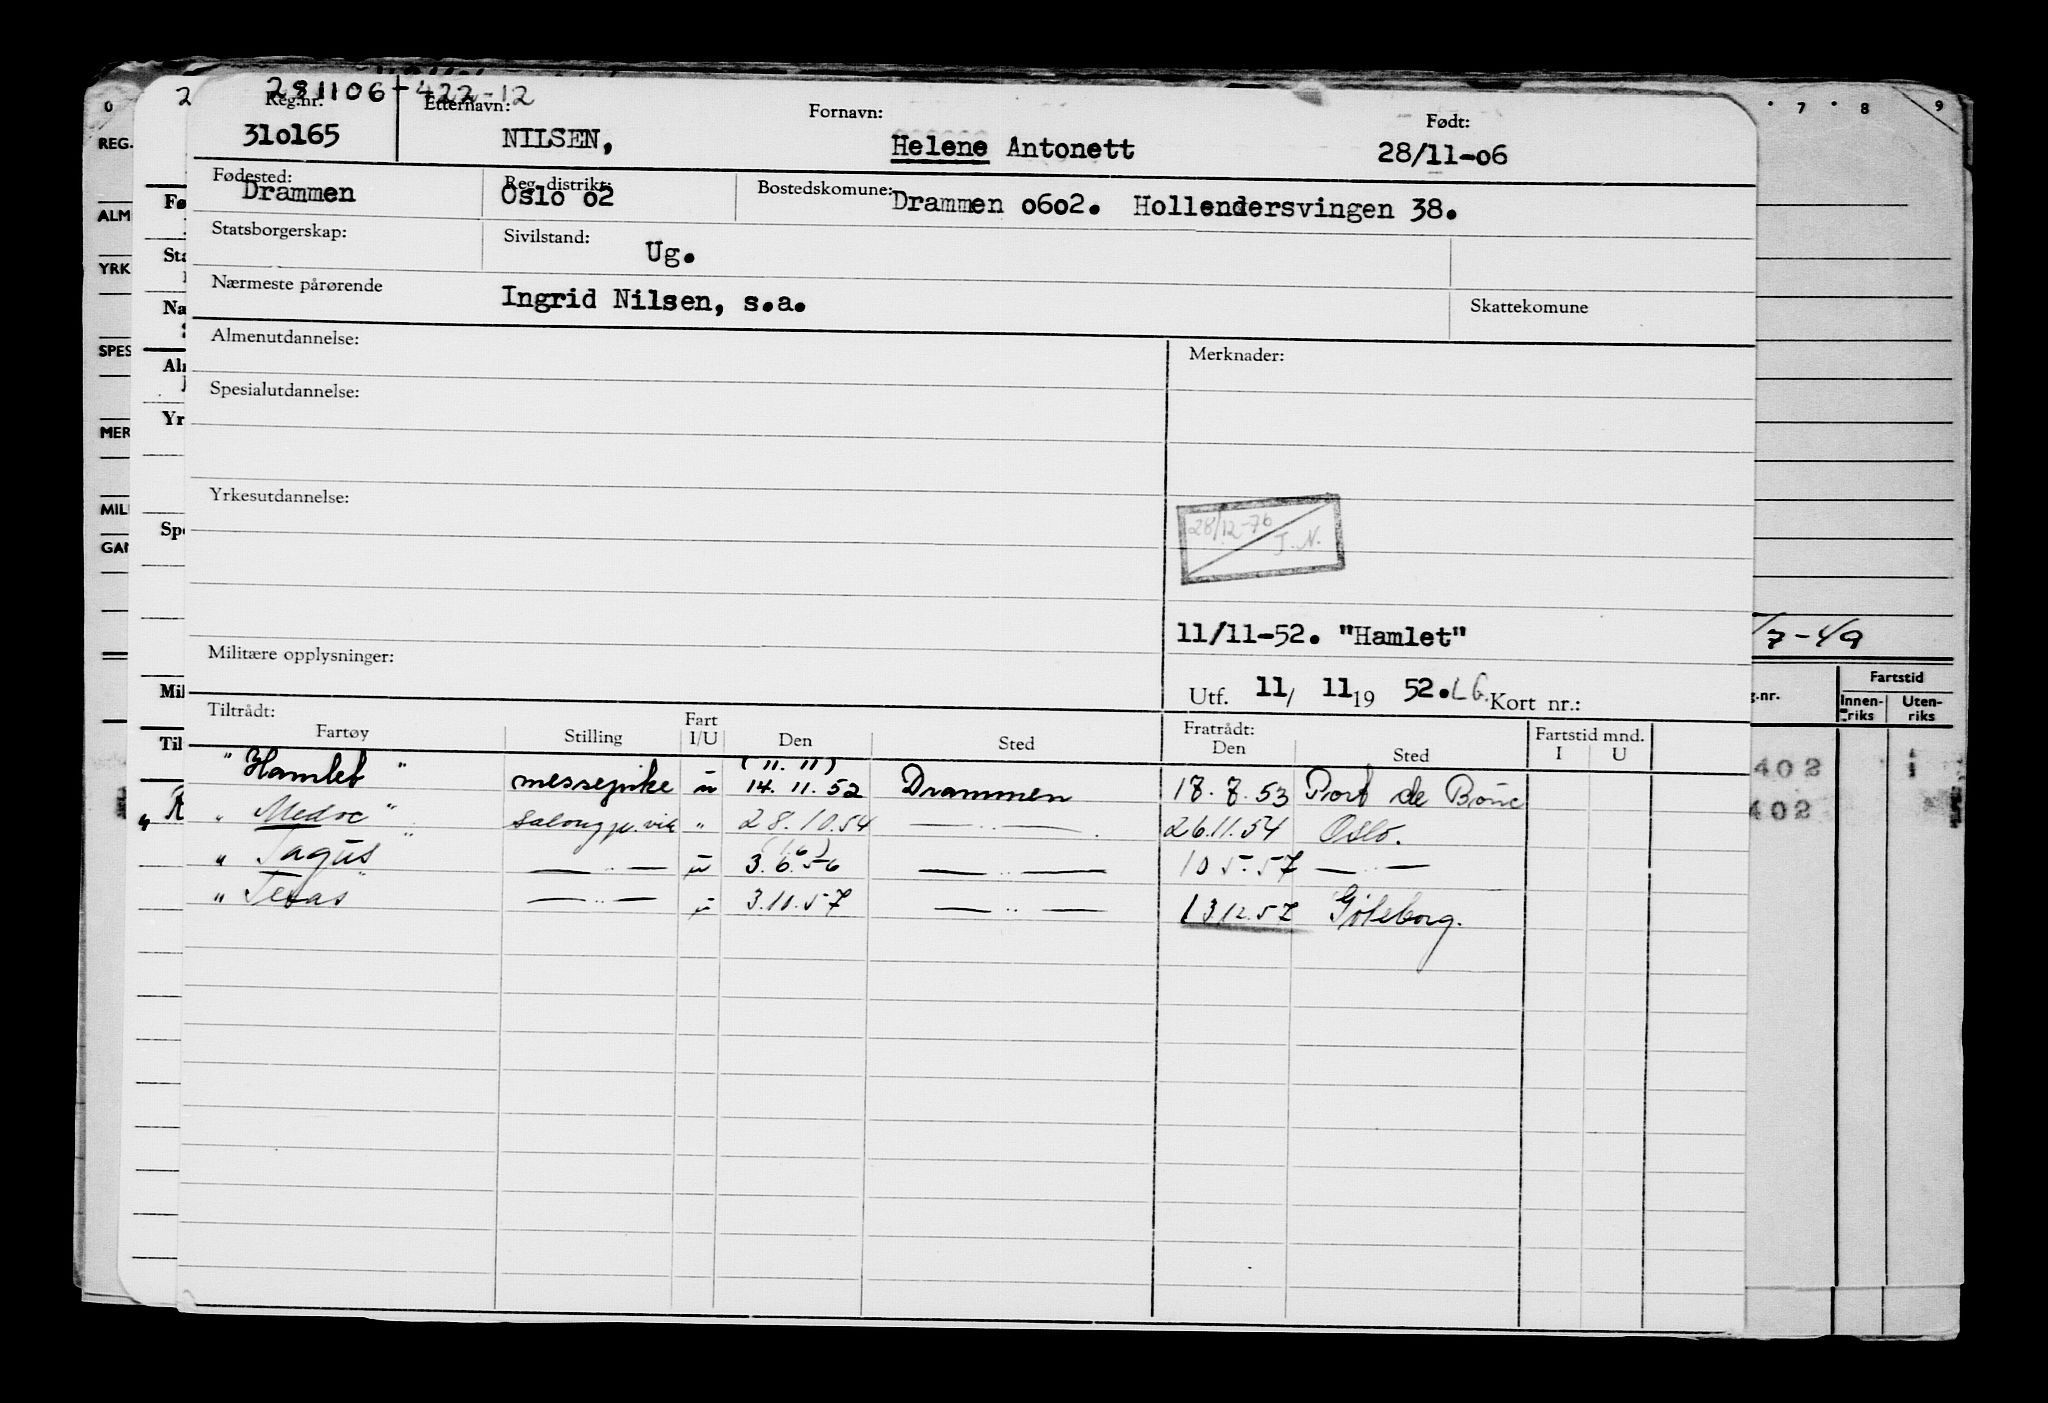 281106-422-12
Reg.nr. Etternavn: Fornavn: Født:
310165 NILSEN, Helene Antonett 28/11-06
Fødested: Reg. distrikt: Bostedskomune:
Drammen Oslo 02 Drammen 0602. Hollendersvingen 38.
Statsborgerskap: Sivilstand: Ug.
Nærmeste pårørende Ingrid Nilsen, s.a. Skattekomune
Almenutdannelse: Merknader:
Spesialutdannelse:
Yrkesutdannelse:
28/12-76 J.N.
11/11-52. "Hamlet"
Militære opplysninger:
Utf. 11/ 11 19 52. LG. Kort nr.:
Tiltrådt: Fratrådt: Fartstid mnd.
Fartøy Stilling Fart I/U Den Sted Den Sted I U
(11.11)
"Hamlet" messepike u 14.11.52 Drammen 17.7.53 Port de Bouc
"Medoc" " 28.10.54 — " — 26.11.54 Oslo.
(1.6)
"Tagus" — " — u 3.6.56 — " — 10 5-57 — " —
"Texas" — " — u 3.10.57 — " — 13 12.57 Göteborg.
0 7 8 9
REG.
ALM
YRK
SPES
MER
MIL
GAN
Fø
Sta
Na
Al
Yr
Spe
Mil
Til
/7-49
g.nr. Fartstid
Innen-riks Uten-riks
402 1
402